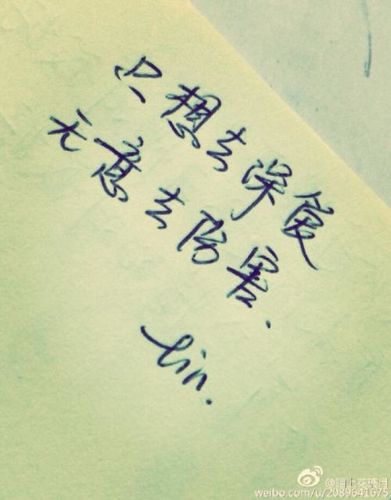 只想去深爱
无意去伤害.
lin.
weibo.com/u/2089641675